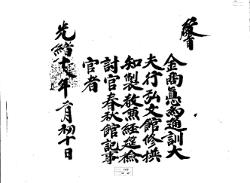 敎旨
金商悳爲通訓大
夫行弘文館修撰
知製敎兼經筵檢
討官春秋館記事
官者
光緖 年 月初十日